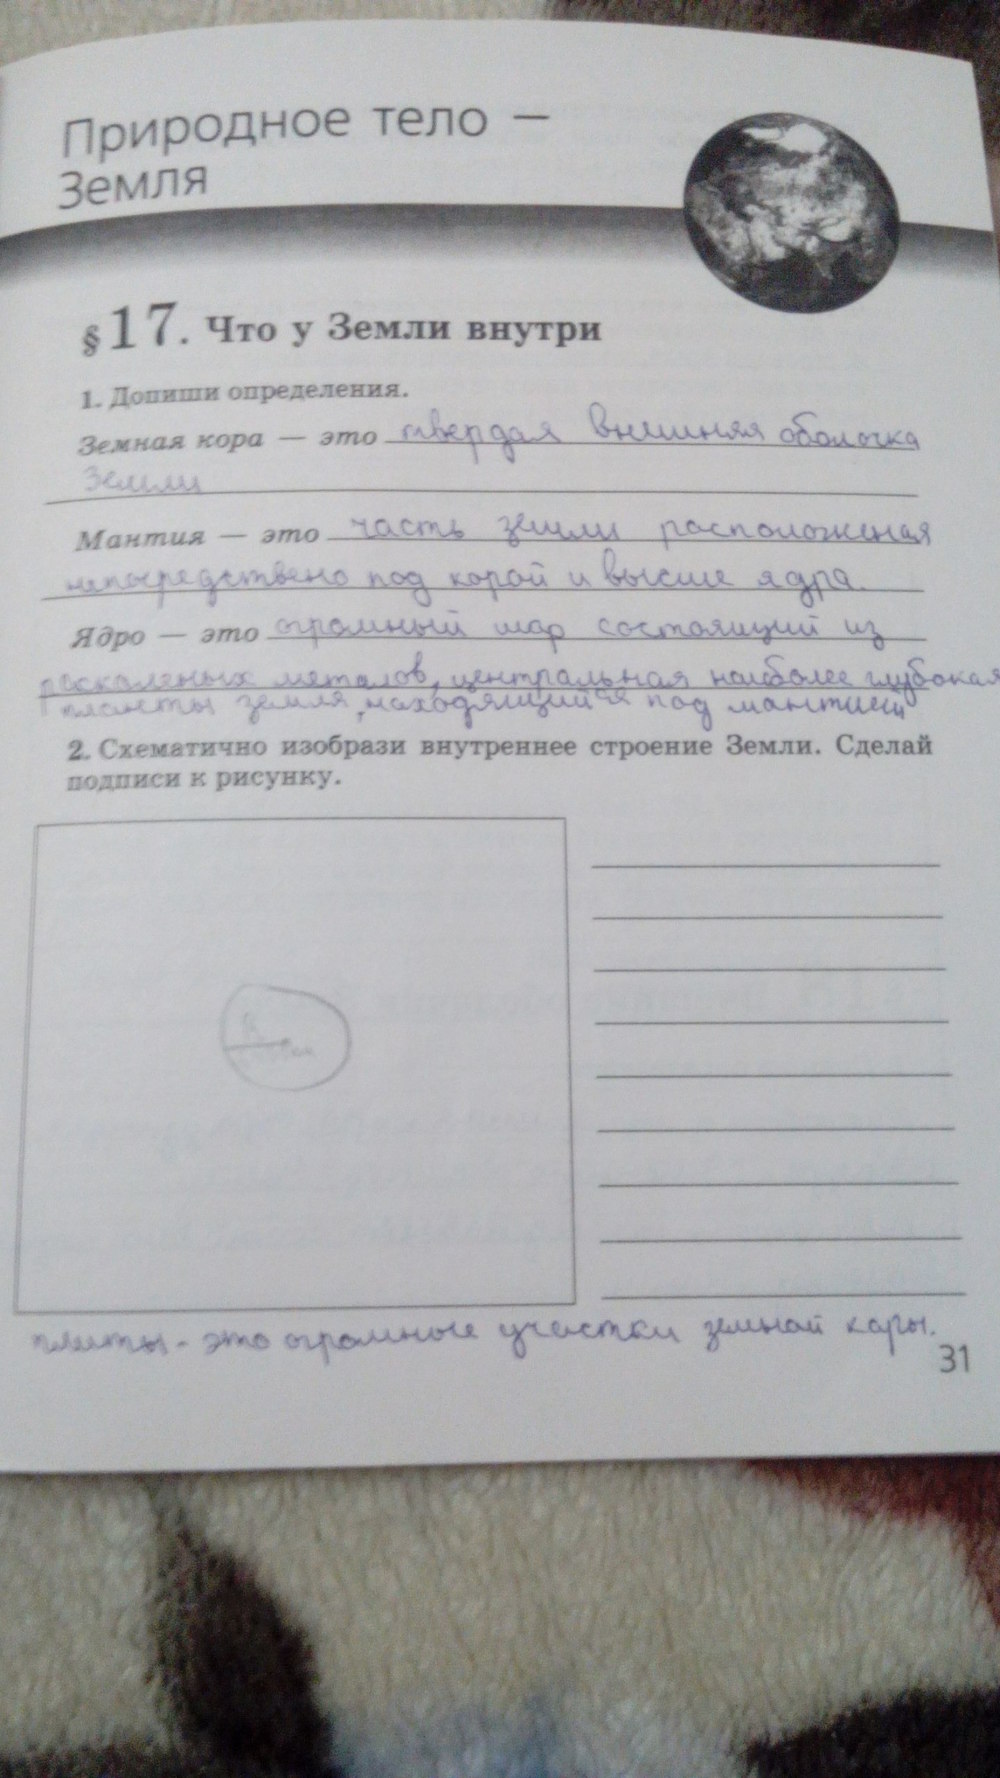 Природное тело —
Земля
§ 17. Что у Земли внутри
1. Допиши определения.
Земная кора — это твердая внешняя оболочка
Земли
Мантия — это часть земли расположеная
непосредствено под корой и высше ядра.
Ядро — это огромный шар состоящий из
раскаленых металов, центральная наиболее глубокая
планеты земля, находящийся под мантией
2. Схематично изобрази внутреннее строение Земли. Сделай
подписи к рисунку.
плиты - это огромные участки земной кары.
31